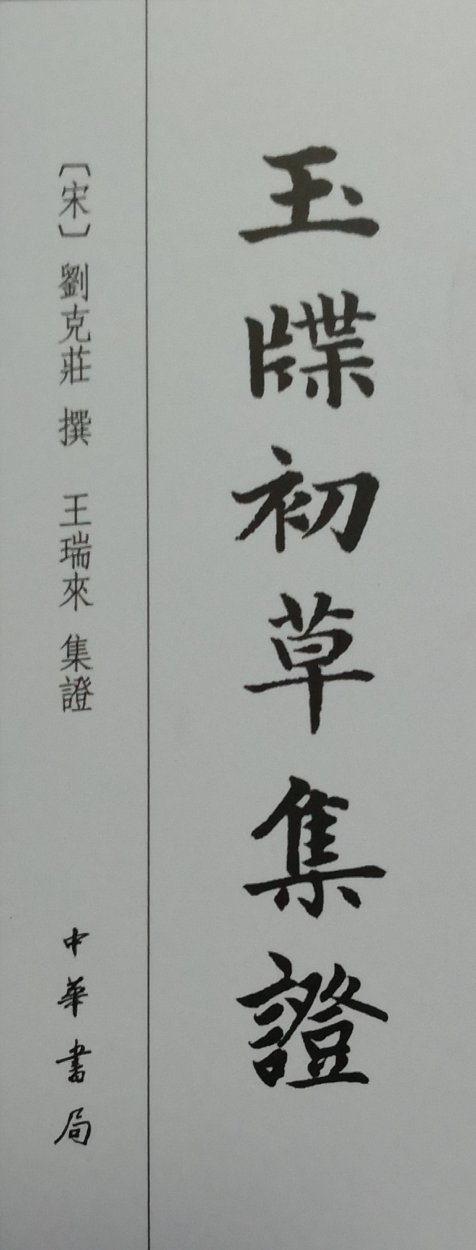 玉牒初草集證
〔宋〕劉克莊 撰 王瑞來 集證
中華書局